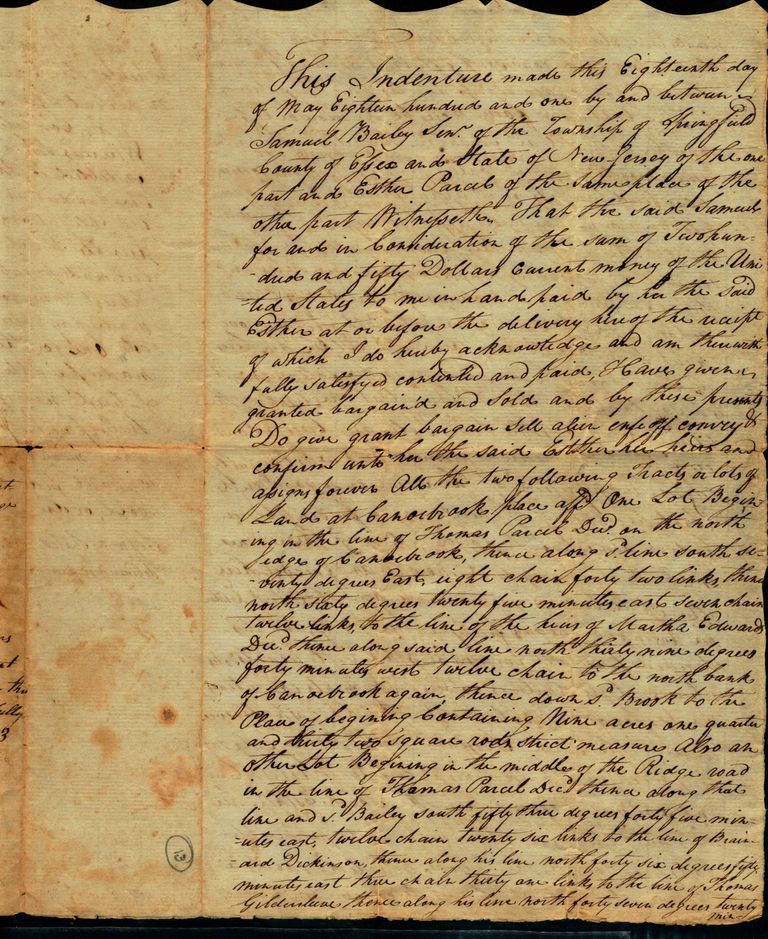 This Indenture made this Eighteenth day
of May Eighteen hundred and one by and between
Samuel Bailey Senr. of the Township of Springfield
County of Essex and State of New Jersey of the one
part and Esther Parcel of the same place of the
other part Witnesseth. That the said Samuel
for and in Consideration of the sum of Two hun-
-dred and fifty Dollars Current money of the Uni-
-ted States to me in hand paid by her the said
Esther at or before the delivery hereof the receipt
of which I do hereby acknowledge and am therewith
fully satisfyed contented and paid, Have given
granted bargain'd and Sold and by these presents
Do give grant bargain sell alien enfeoff convey &
confirm unto her the said Esther her heirs and
asigns forever All the two following Tracts or lots of
Land at Canoebrook place affd. One Lot Begin-
-ing in the line of Thomas Parcel Decd. on the north
edge of Canoebrook, thence along sd. line south se-
-venty degrees East, eight chain forty two links, thence
north sixty degrees twenty five minutes east seven chain
twelve links, to the line of the heirs of Martha Edwards
Decd. thence along said line north thirty nine degrees
forty minutes west twelve chain to the north bank
of Canoebrook again, thence down sd. Brook to the
Place of begining Containing Nine acres one quarter
and thirty two square rods strict measure Also an
other Lot Begining in the middle of the Ridge road
in the line of Thomas Parcel Decd. thence along that
line and sd. Bailey south fifty three degrees forty five min-
-utes east, twelve chain twenty six links to the line of Brain-
-ard Dickinson, thence along his line north forty six degrees fifty
minutes east three chain thirty one links to the line of Thomas
Gildersleave thence along his line north forty seven degrees twenty
min-
13